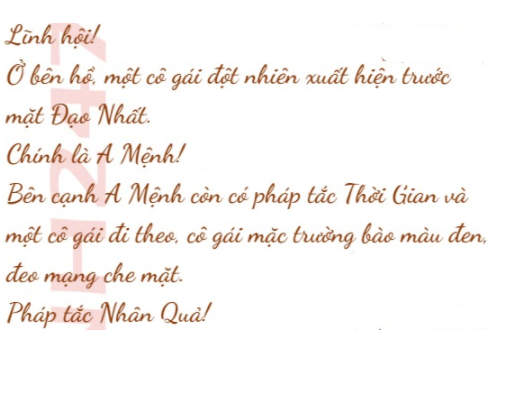 Lĩnh hội!
Ở bên hồ, một cô gái đột nhiên xuất hiện trước
mặt Đạo Nhất.
Chính là A Mệnh!
Bên cạnh A Mệnh còn có pháp tắc Thời Gian và
một cô gái đi theo, cô gái mặc trường bào màu đen,
đeo mạng che mặt.
Pháp tắc Nhân Quả!
NH247